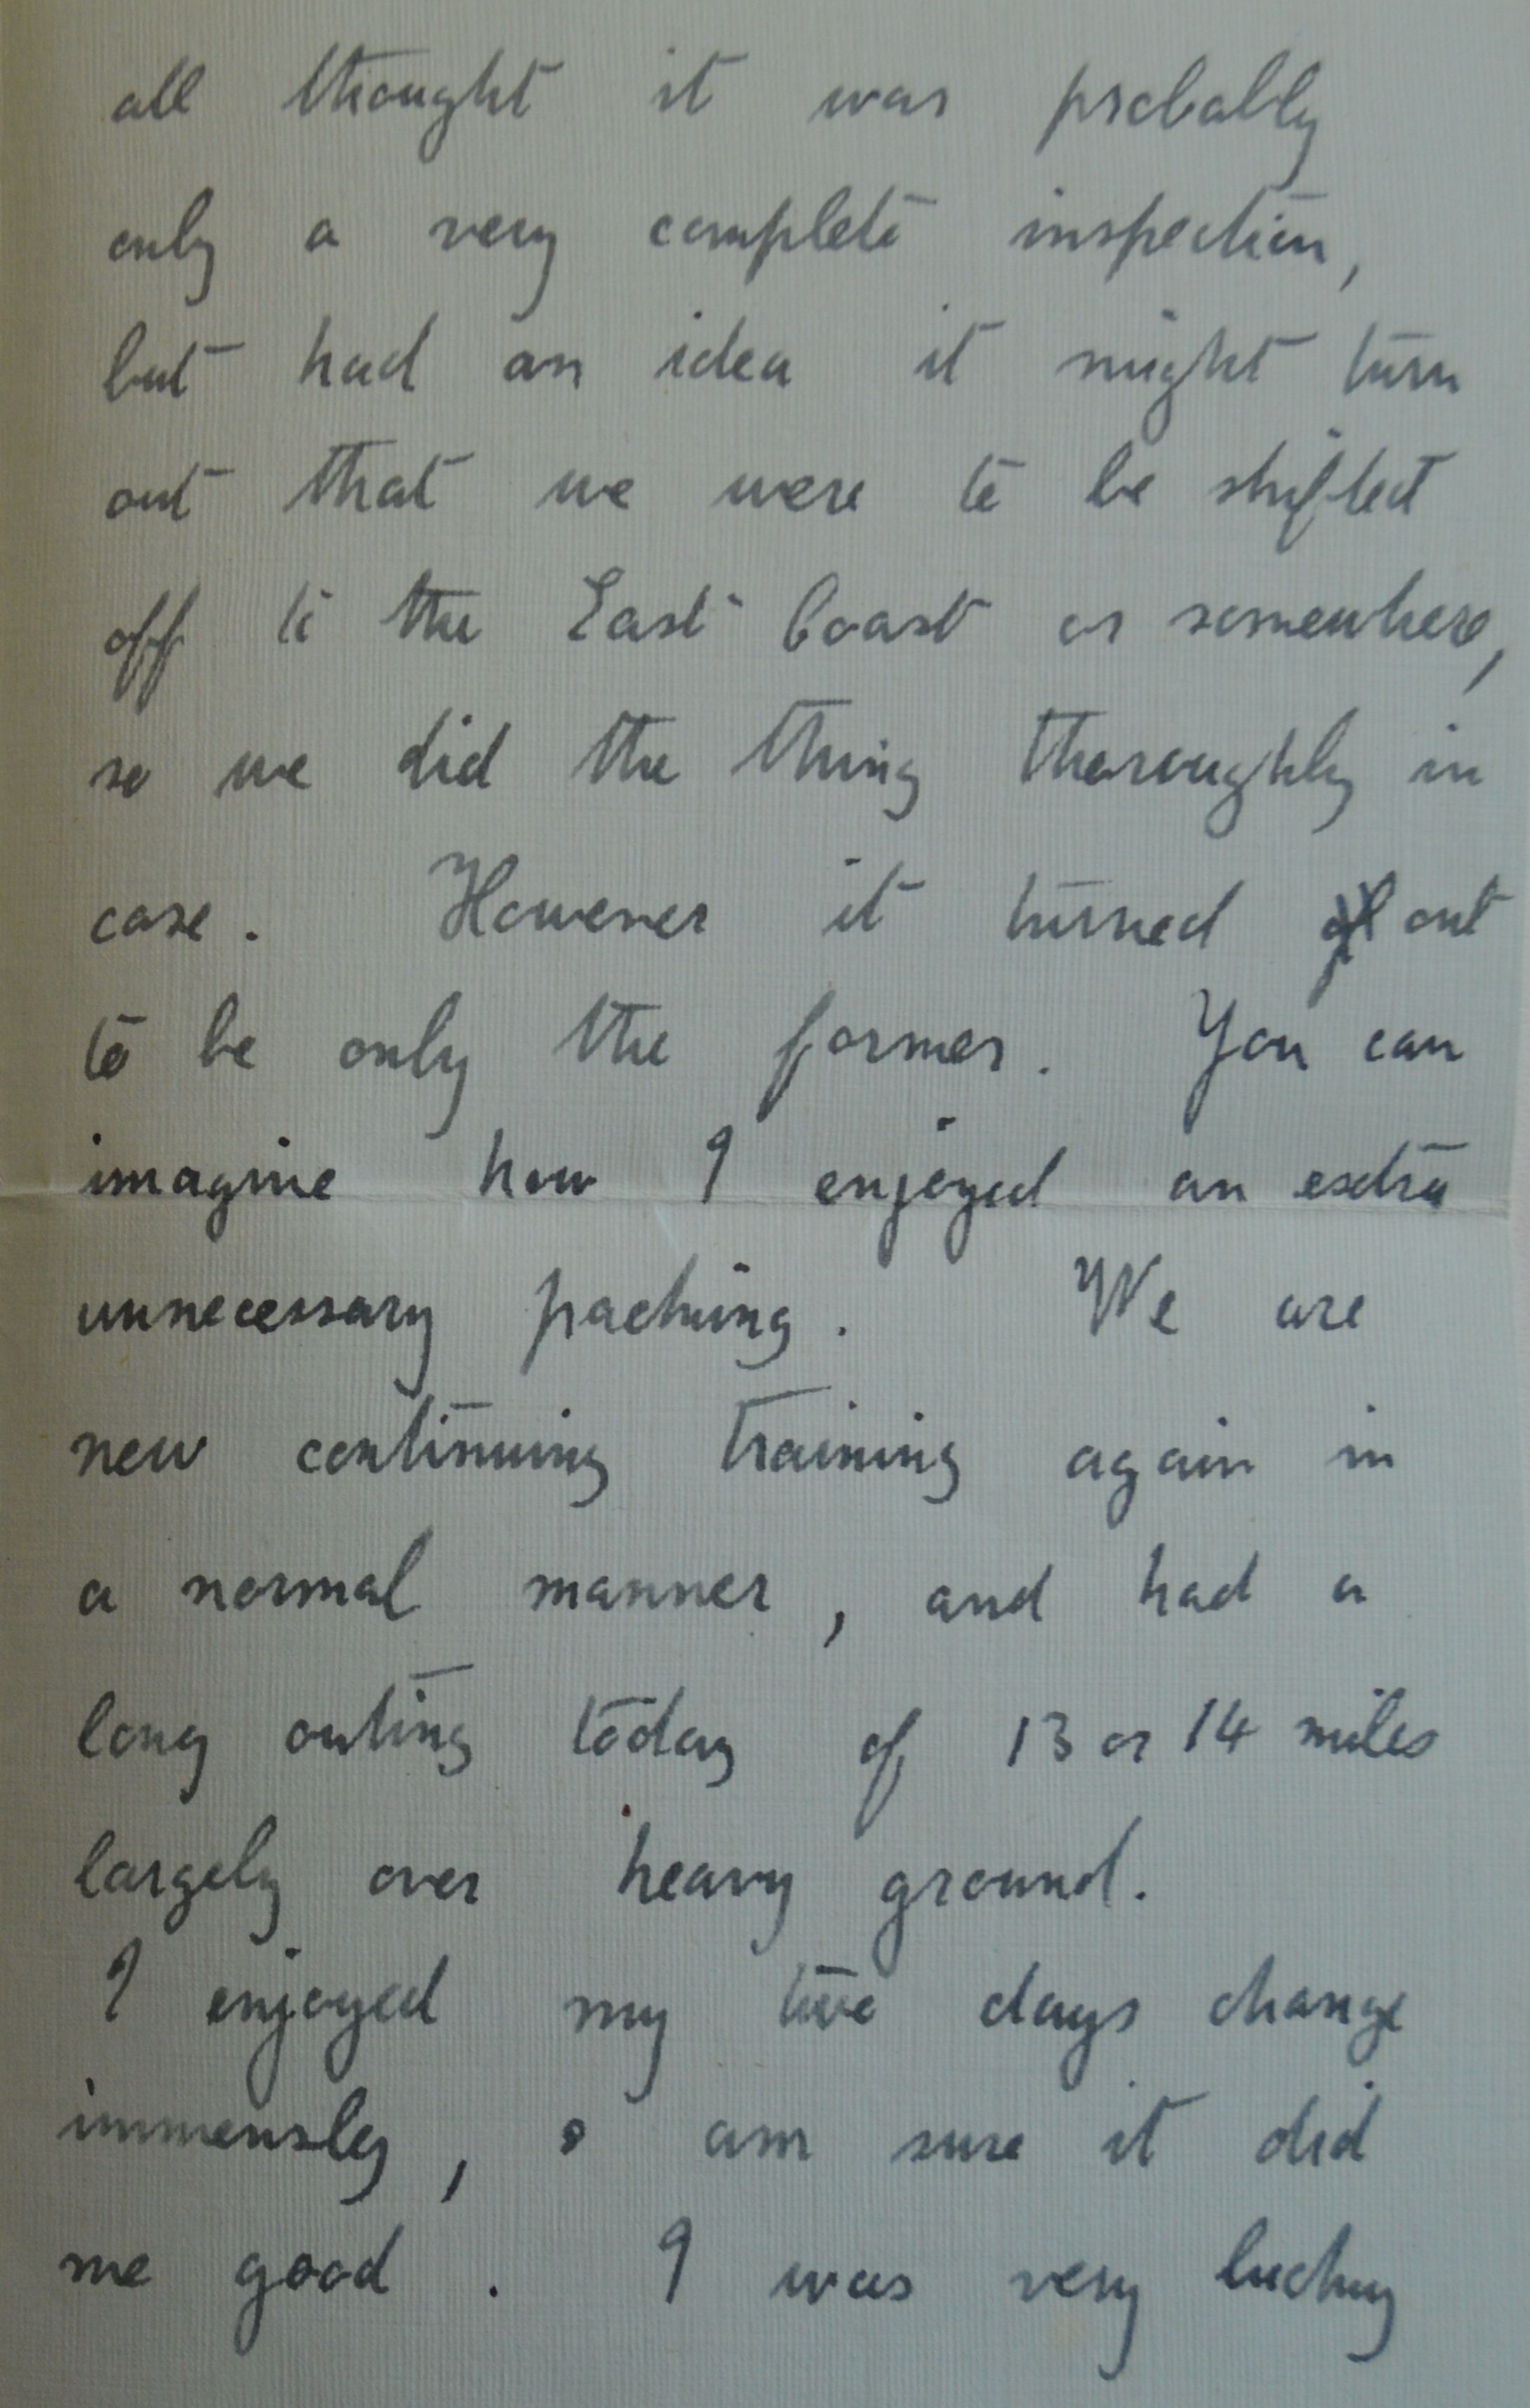 all thought it was probably
only a very complete inspection,
but had an idea it might turn
out that we were to be shifted
off to the East Coast or somewhere,
so we did the thing thoroughly in
case. However it turned out
to be only the former. You can
imagine how I enjoyed an extra
unnecessary packing. We are
now continuing training again in
a normal manner, and had a
long outing today of 13 or 14 miles
largely over heavy ground.
I enjoyed my two days change
immensly, & am sure it did
me good. I was very lucky